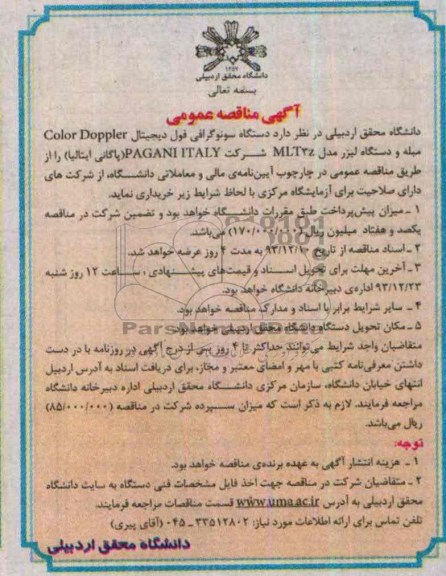 ۱۳۵۷
دانشگاه محقق اردبیلی
بسمه تعالی
آگهی مناقصه عمومی
دانشگاه محقق اردبیلی در نظر دارد دستگاه سونوگرافی فول دیجیتال Color Doppler
مبله و دستگاه لیزر مدل MLT۳z شرکت PAGANI ITALY(پاگانی ایتالیا) را از
طریق مناقصه عمومی در چارچوب آیین‌نامه‌ی مالی و معاملاتی دانشگاه، از شرکت های
دارای صلاحیت برای آزمایشگاه مرکزی با لحاظ شرایط زیر خریداری نماید.
۱ - میزان پیش‌پرداخت طبق مقررات دانشگاه خواهد بود و تضمین شرکت در مناقصه
یکصد و هفتاد میلیون ریال (۱۷۰/۰۰۰/۰۰۰) می‌باشد.
۲ - اسناد مناقصه از تاریخ ۹۳/۱۲/۱۰ به مدت ۴ روز عرضه خواهد شد.
۳ - آخرین مهلت برای تحویل اسناد و قیمت‌های پیشنهادی، ساعت ۱۲ روز شنبه
۹۳/۱۲/۲۳ اداره‌ی دبیرخانه دانشگاه خواهد بود.
۴ - سایر شرایط برابر با اسناد و مدارک مناقصه خواهد بود.
۵ - مکان تحویل دستگاه دانشگاه محقق اردبیلی خواهد بود.
متقاضیان واجد شرایط می‌توانند حداکثر تا ۴ روز پس از درج آگهی در روزنامه با در دست
داشتن معرفی‌نامه کتبی با مهر و امضای معتبر و مجاز، برای دریافت اسناد به آدرس اردبیل
انتهای خیابان دانشگاه، سازمان مرکزی دانشگاه محقق اردبیلی اداره دبیرخانه دانشگاه
مراجعه فرمایند. لازم به ذکر است که میزان سپرده شرکت در مناقصه (۸۵/۰۰۰/۰۰۰)
ریال می‌باشد.
توجه:
۱ - هزینه انتشار آگهی به عهده برنده‌ی مناقصه خواهد بود.
۲ - متقاضیان شرکت در مناقصه جهت اخذ فایل مشخصات فنی دستگاه به سایت دانشگاه
محقق اردبیلی به آدرس www.uma.ac.ir قسمت مناقصات مراجعه فرمایند.
تلفن تماس برای ارائه اطلاعات مورد نیاز: ۳۳۵۱۲۸۰۲ - ۰۴۵ (آقای پیری)
دانشگاه محقق اردبیلی